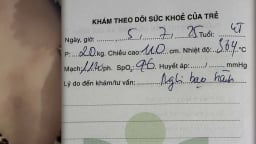 KHÁM THEO DÕI SỨC KHOẺ CỦA TRẺ
Ngày, giờ: 5, 7, 25 Tuổi: 4T
P: 20 kg. Chiều cao: 110 cm. Nhiệt độ: 36.4 °C
Mạch: 114 l/ph. SpO₂: 96. Huyết áp: / mmHg
Lý do đến khám/tư vấn: Nghi bạo hành